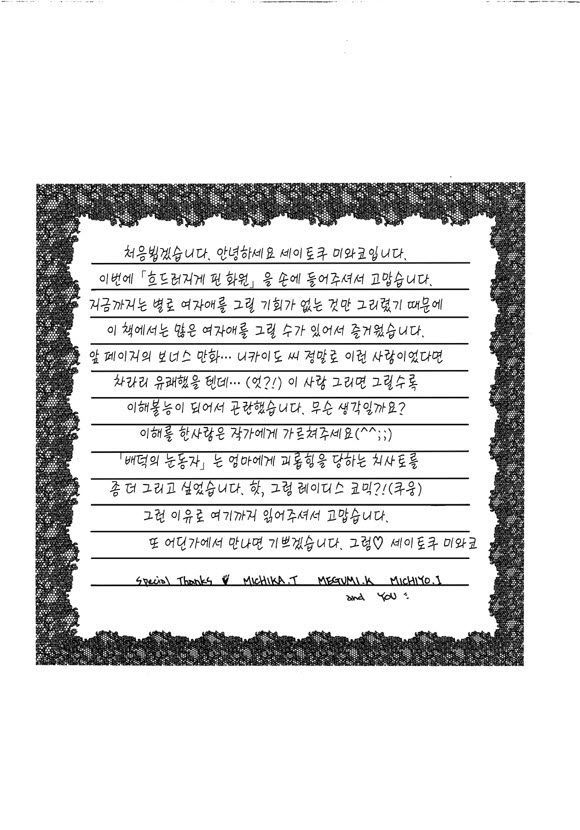 처음뵙겠습니다. 안녕하세요 세이토쿠 미와코입니다.
이번에 「흐드러지게 핀 화원」을 손에 들어주셔서 고맙습니다.
지금까지는 별로 여자애를 그릴 기회가 없는 것만 그리렸기 때문에
이 책에서는 많은 여자애를 그릴 수가 있어서 즐거웠습니다.
앞 페이지의 보너스 만화… 니카이도 씨 정말로 이런 사람이었다면
차라리 유쾌했을 텐데… (엇?!) 이 사람 그리면 그릴수록
이해불능이 되어서 곤란했습니다. 무슨 생각일까요?
이해를 한사람은 작가에게 가르쳐주세요(^^;;)
「배덕의 눈동자」는 엄마에게 괴롭힘을 당하는 치사토를
좀 더 그리고 싶었습니다. 핫, 그럼 레이디스 코믹?!(쿠웅)
그런 이유로 여기까지 읽어주셔서 고맙습니다.
또 어딘가에서 만나면 기쁘겠습니다. 그럼♡ 세이토쿠 미와코
Special Thanks ♥ MICHIKA.T MEGUMI.K MICHIYO.I
and YOU :